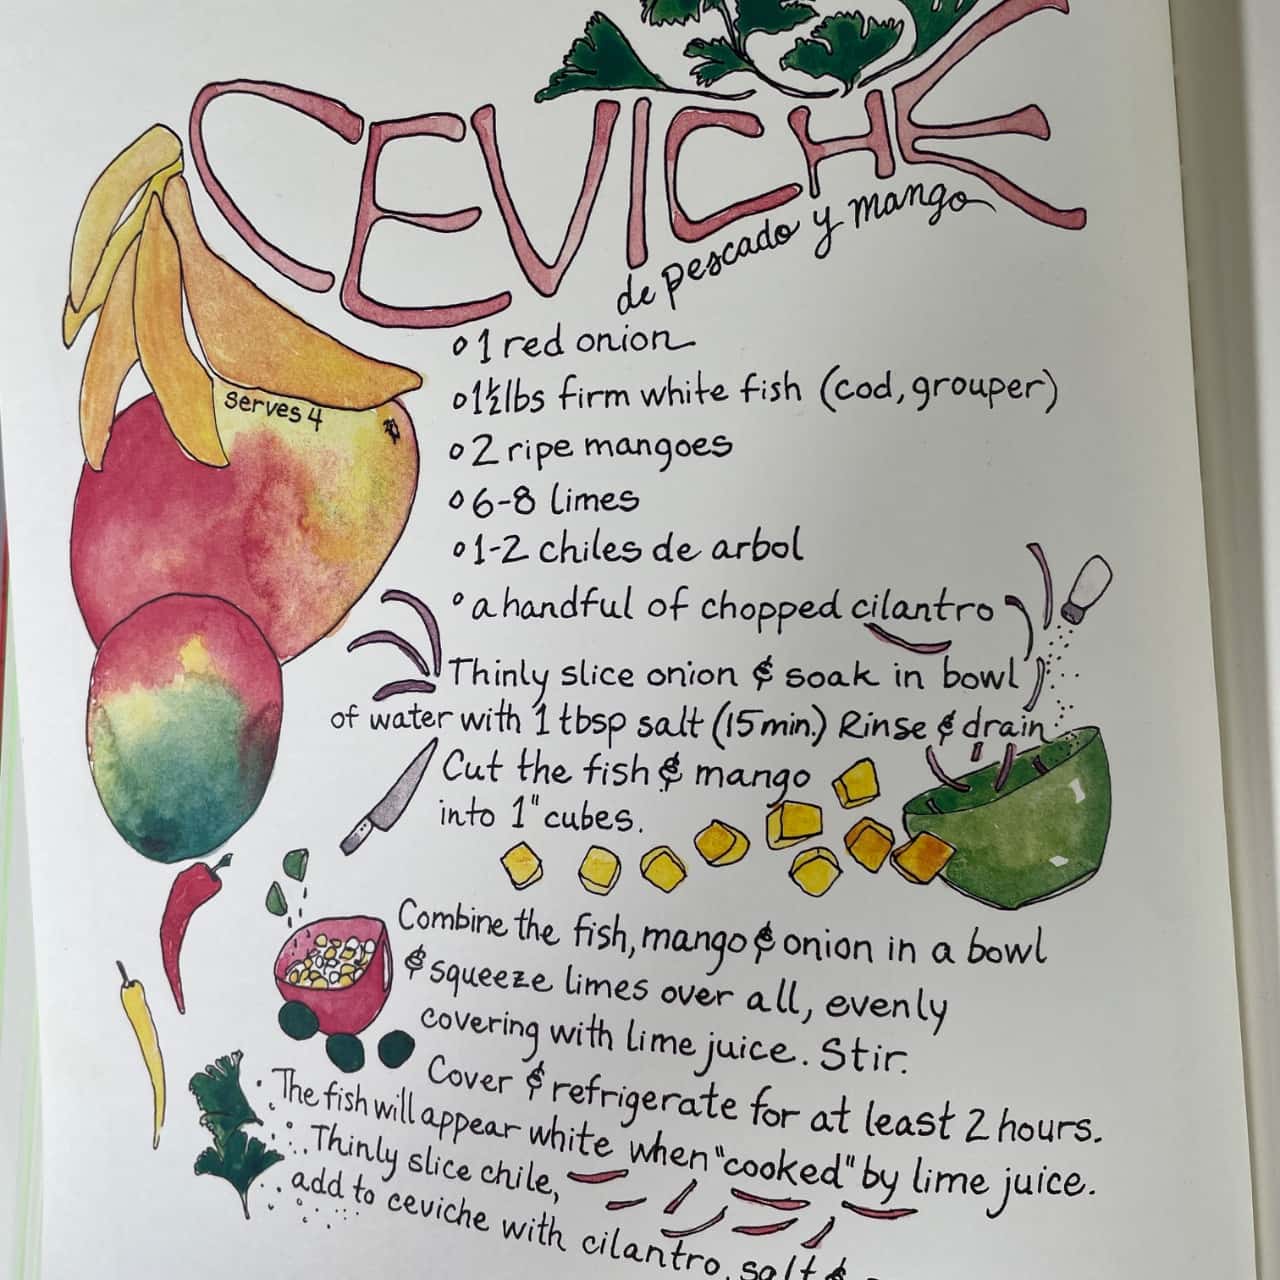 CEVICHE
de pescado y mango
serves 4
1 red onion
1½lbs firm white fish (cod, grouper)
2 ripe mangoes
6-8 limes
1-2 chiles de arbol
a handful of chopped cilantro
Thinly slice onion & soak in bowl
of water with 1 tbsp salt (15 min.) Rinse & drain
Cut the fish & mango
into 1" cubes.
Combine the fish, mango & onion in a bowl
& squeeze limes over all, evenly
covering with lime juice. Stir.
Cover & refrigerate for at least 2 hours.
The fish will appear white when "cooked" by lime juice.
Thinly slice chile,
add to ceviche with cilantro, salt &